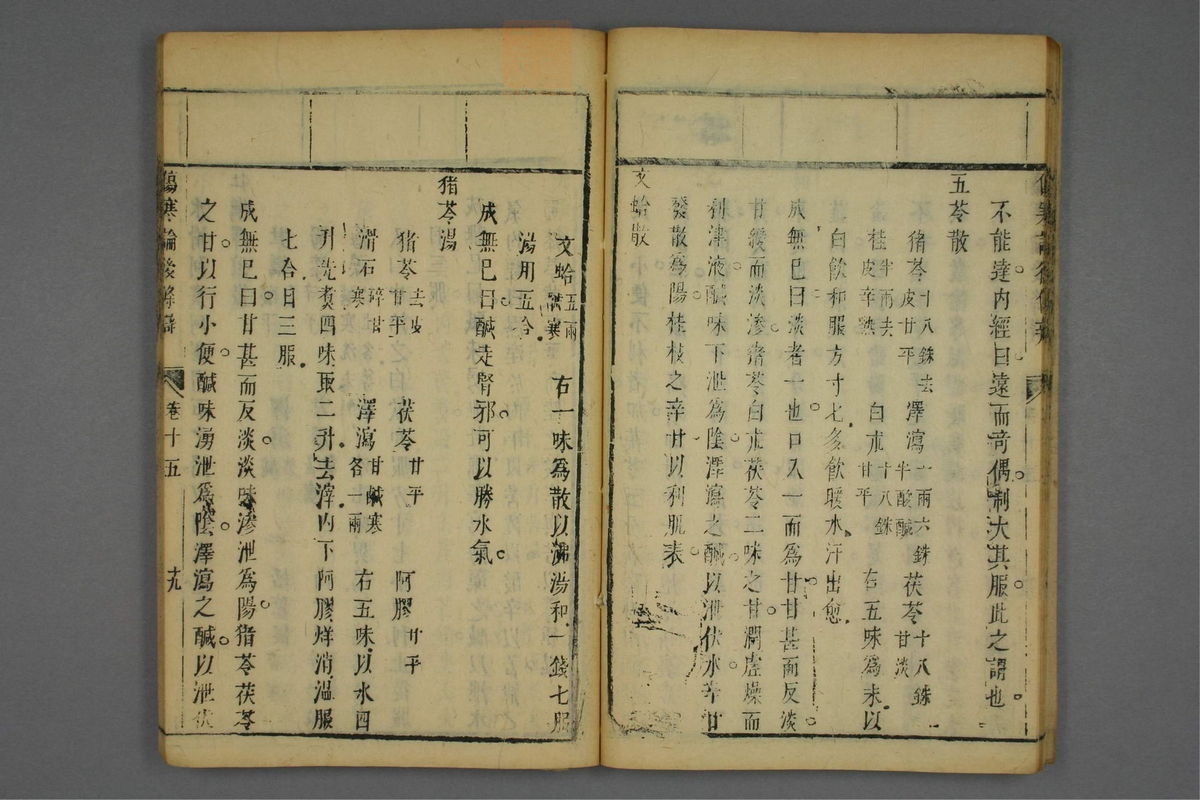 不能達內經曰遠而竒偶制大其服此之謂也
五苓散
猪苓十八銖去皮甘平 澤瀉一兩六銖半酸鹹 茯苓十八銖甘淡
桂半兩去皮辛熱 白朮十八銖甘平 右五味為末以
白飲和服方寸匕多飲暖水汗出愈
成無已曰淡者一也口入一而為甘甘甚而反淡
甘緩而淡滲猪苓白朮茯苓三味之甘潤虛燥而
利津液鹹味下泄為陰澤瀉之鹹以泄伏水辛甘
發散為陽桂枝之辛甘以利肌表
文蛤散
文蛤五兩鹹寒 右一味為散以沸湯和一錢七服
湯用五合
成無已曰鹹走腎邪可以勝水氣
猪苓湯
猪苓去皮甘平 茯苓甘平 阿膠甘平
滑石碎甘寒 澤瀉甘鹹寒各一兩 右五味以水四
升先煑四味取二升去滓內下阿膠烊消溫服
七合日三服
成無已曰甘甚而反淡淡味滲泄為陽猪苓茯苓
之甘以行小便鹹味湧泄為陰澤瀉之鹹以泄伏
傷寒論後條辯 卷十五 十九